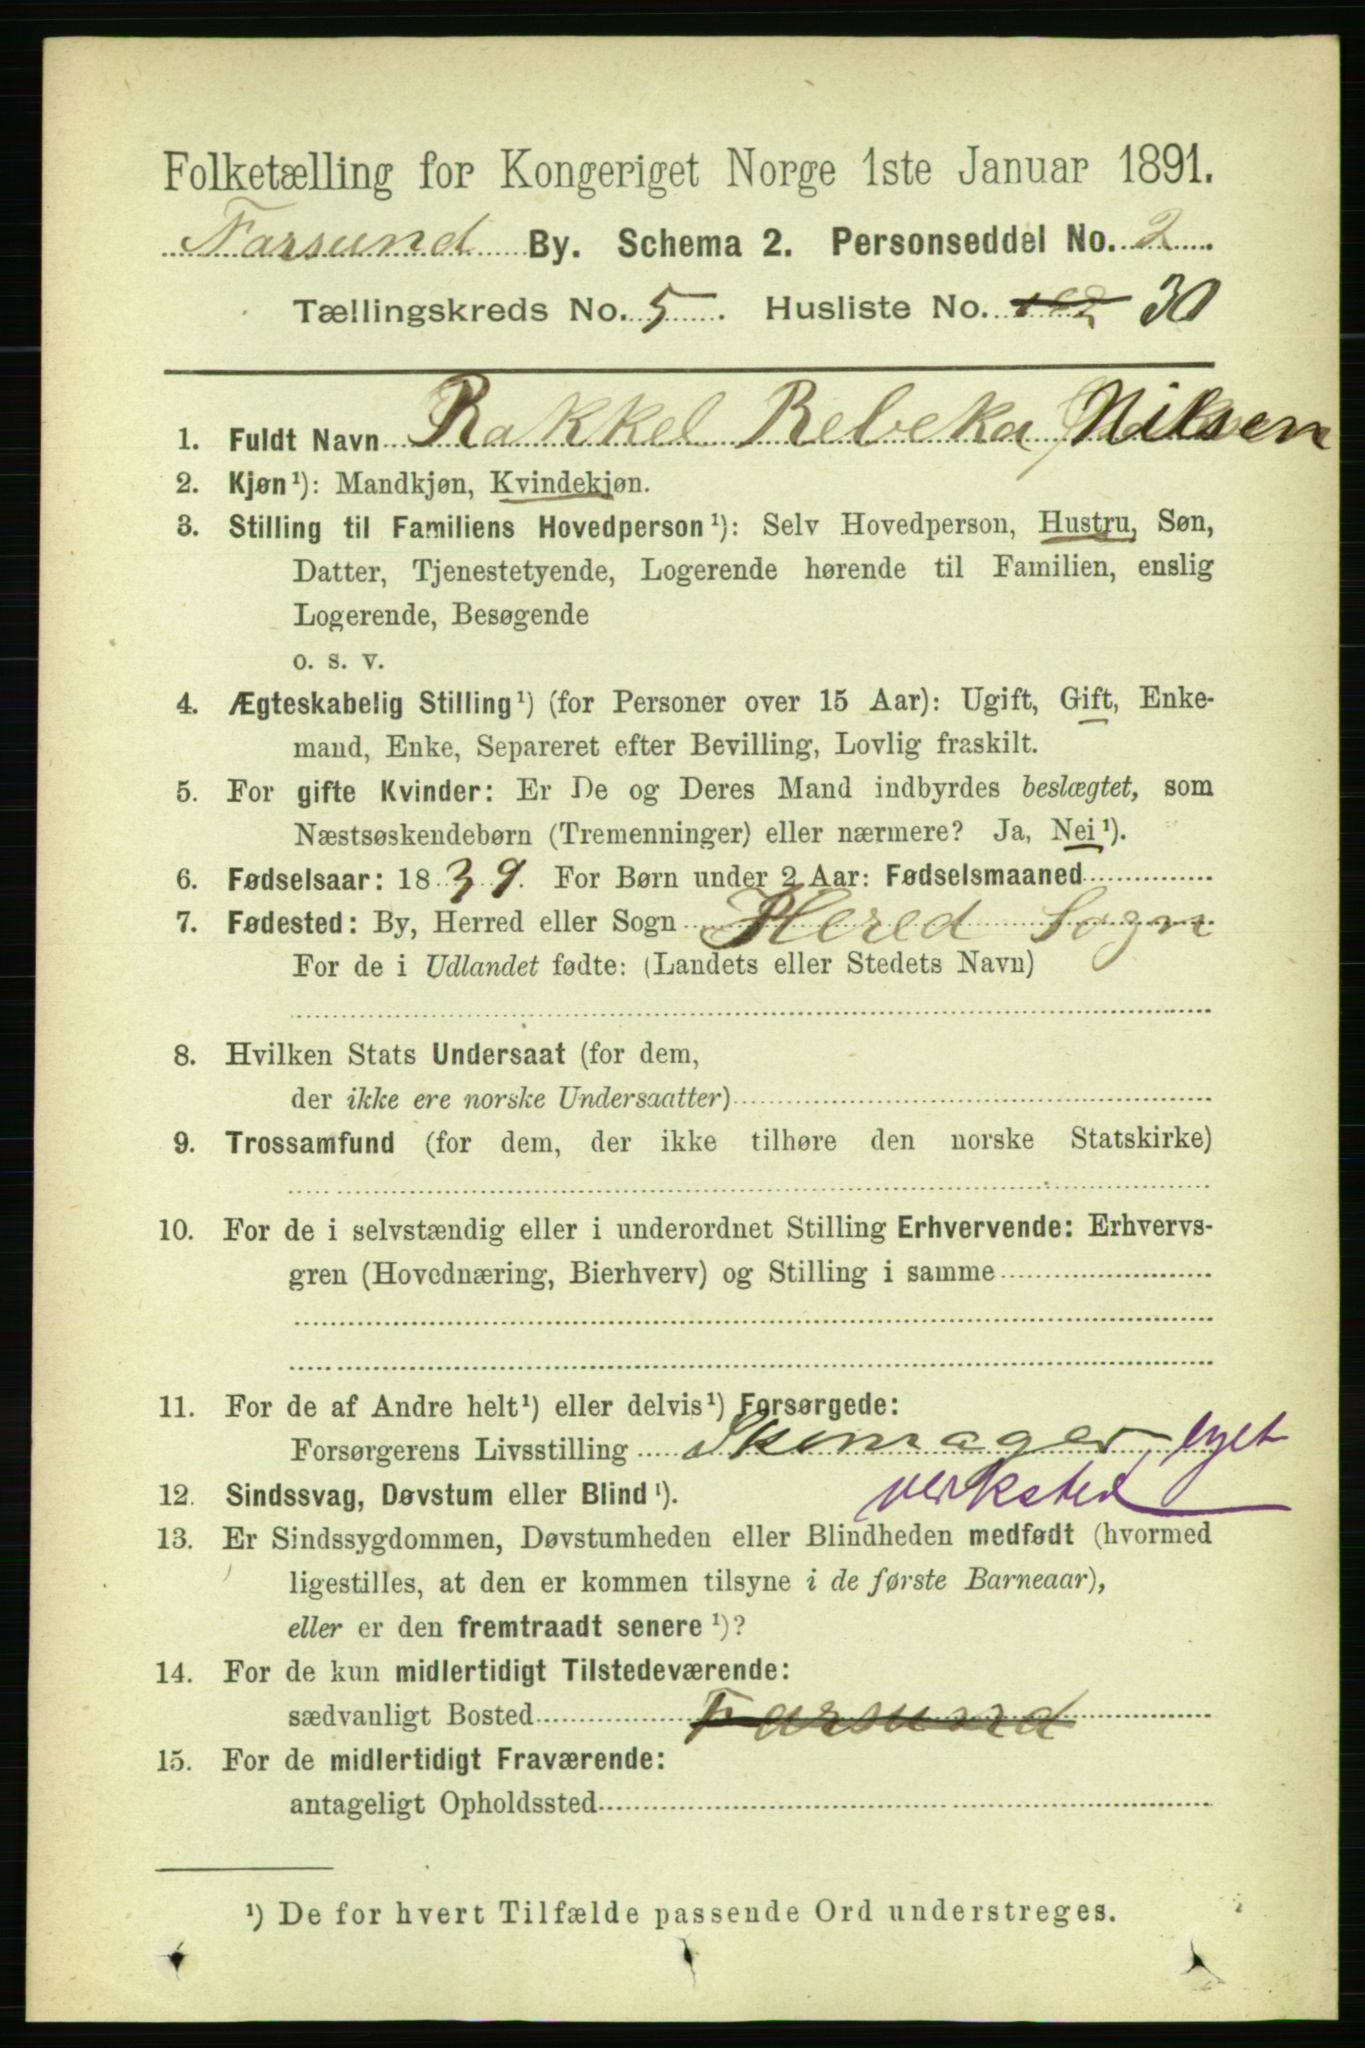 Folketælling for Kongeriget Norge 1ste Januar 1891.
Farsund By. Schema 2. Personseddel No. 2
Tællingskreds No. 5. Husliste No. 30
1. Fuldt Navn Rakkel Rebeka Nilsen
2. Kjøn¹): Mandkjøn, Kvindekjøn.
3. Stilling til Familiens Hovedperson¹): Selv Hovedperson, Hustru, Søn,
Datter, Tjenestetyende, Logerende hørende til Familien, enslig
Logerende, Besøgende
o. s. v.
4. Ægteskabelig Stilling¹) (for Personer over 15 Aar): Ugift, Gift, Enke-
mand, Enke, Separeret efter Bevilling, Lovlig fraskilt.
5. For gifte Kvinder: Er De og Deres Mand indbyrdes beslægtet, som
Næstsøskendebørn (Tremenninger) eller nærmere? Ja, Nei¹).
6. Fødselsaar: 1839. For Børn under 2 Aar: Fødselsmaaned
7. Fødested: By, Herred eller Sogn Hered Sogn
For de i Udlandet fødte: (Landets eller Stedets Navn)
8. Hvilken Stats Undersaat (for dem,
der ikke ere norske Undersaatter)
9. Trossamfund (for dem, der ikke tilhøre den norske Statskirke)
10. For de i selvstændig eller i underordnet Stilling Erhvervende: Erhvervs-
gren (Hovednæring, Bierhverv) og Stilling i samme
11. For de af Andre helt¹) eller delvis¹) Forsørgede:
Forsørgerens Livsstilling Skomager, eget
verksted
12. Sindssvag, Døvstum eller Blind¹).
13. Er Sindssygdommen, Døvstumheden eller Blindheden medfødt (hvormed
ligestilles, at den er kommen tilsyne i de første Barneaar),
eller er den fremtraadt senere¹)?
14. For de kun midlertidigt Tilstedeværende:
sædvanligt Bosted Farsund
15. For de midlertidigt Fraværende:
antageligt Opholdssted
¹) De for hvert Tilfælde passende Ord understreges.